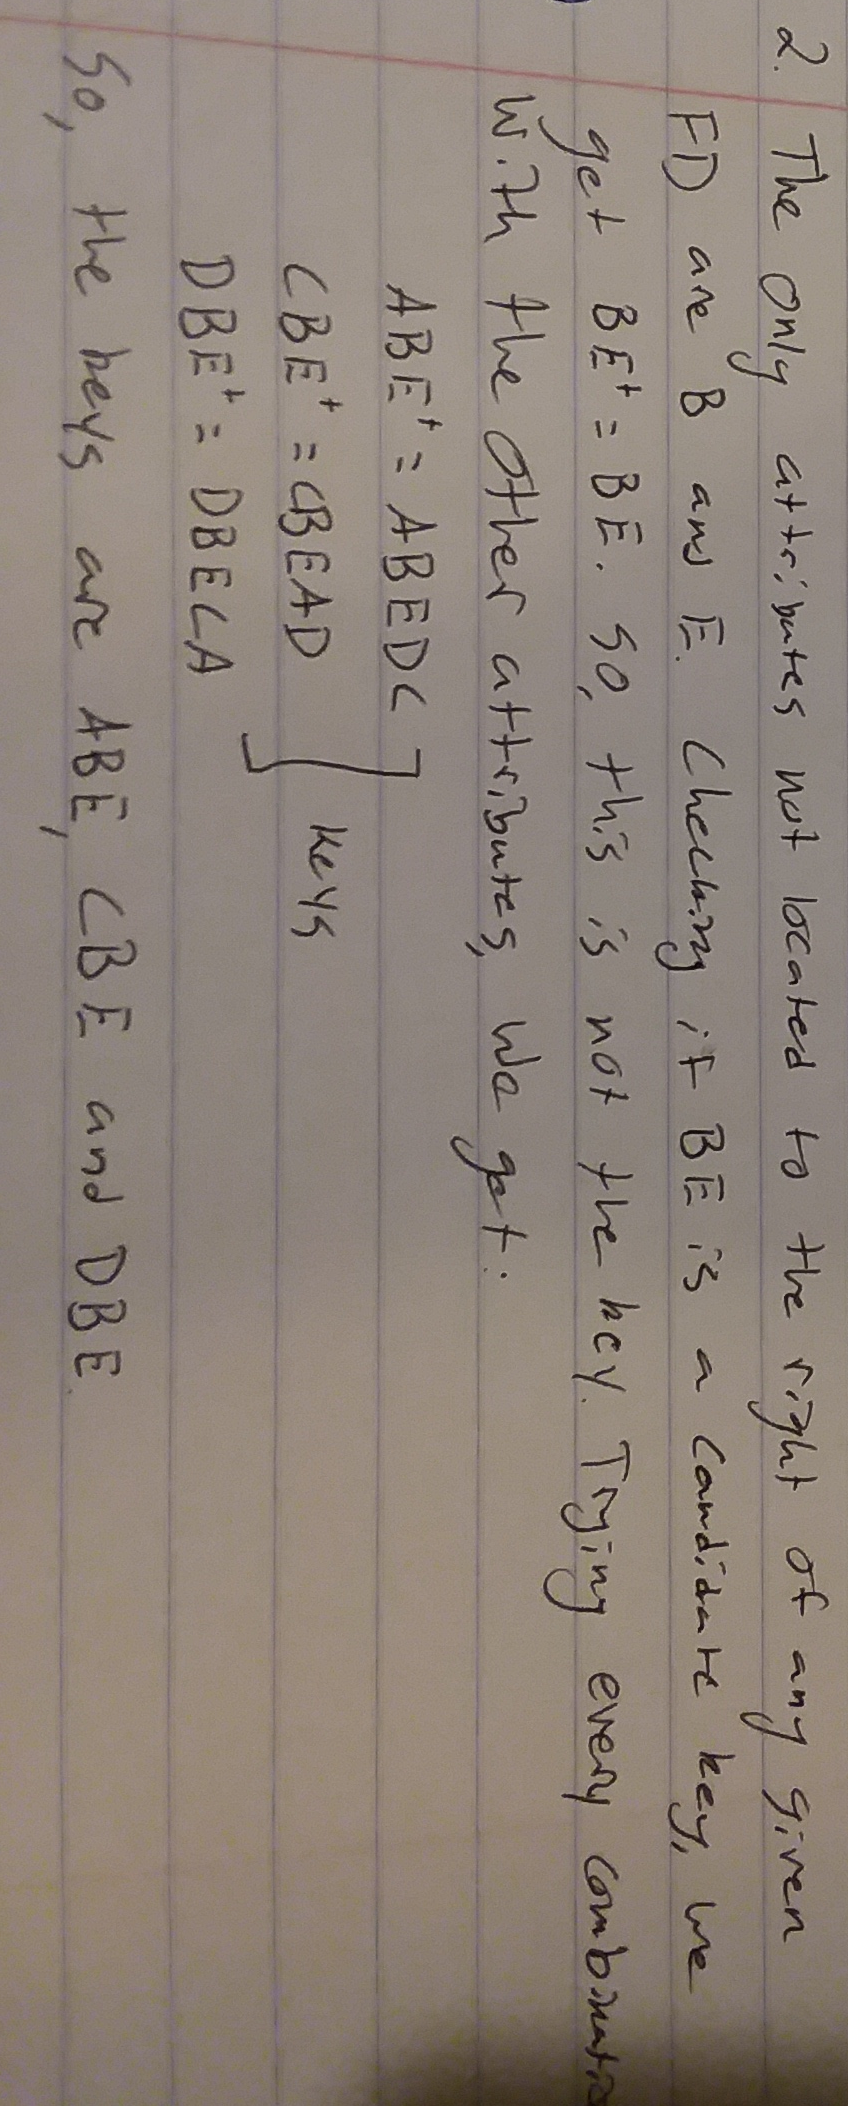 2. The only attributes not located to the right of any given
FD are B and E. Checking if BE is a candidate key, we
get BE⁺ = BE. So, this is not the key. Trying every combinatio
with the other attributes, we get:
ABE⁺ = ABEDC
CBE⁺ = CBEAD
keys
DBE⁺ = DBECA
So, the keys are ABE, CBE and DBE.